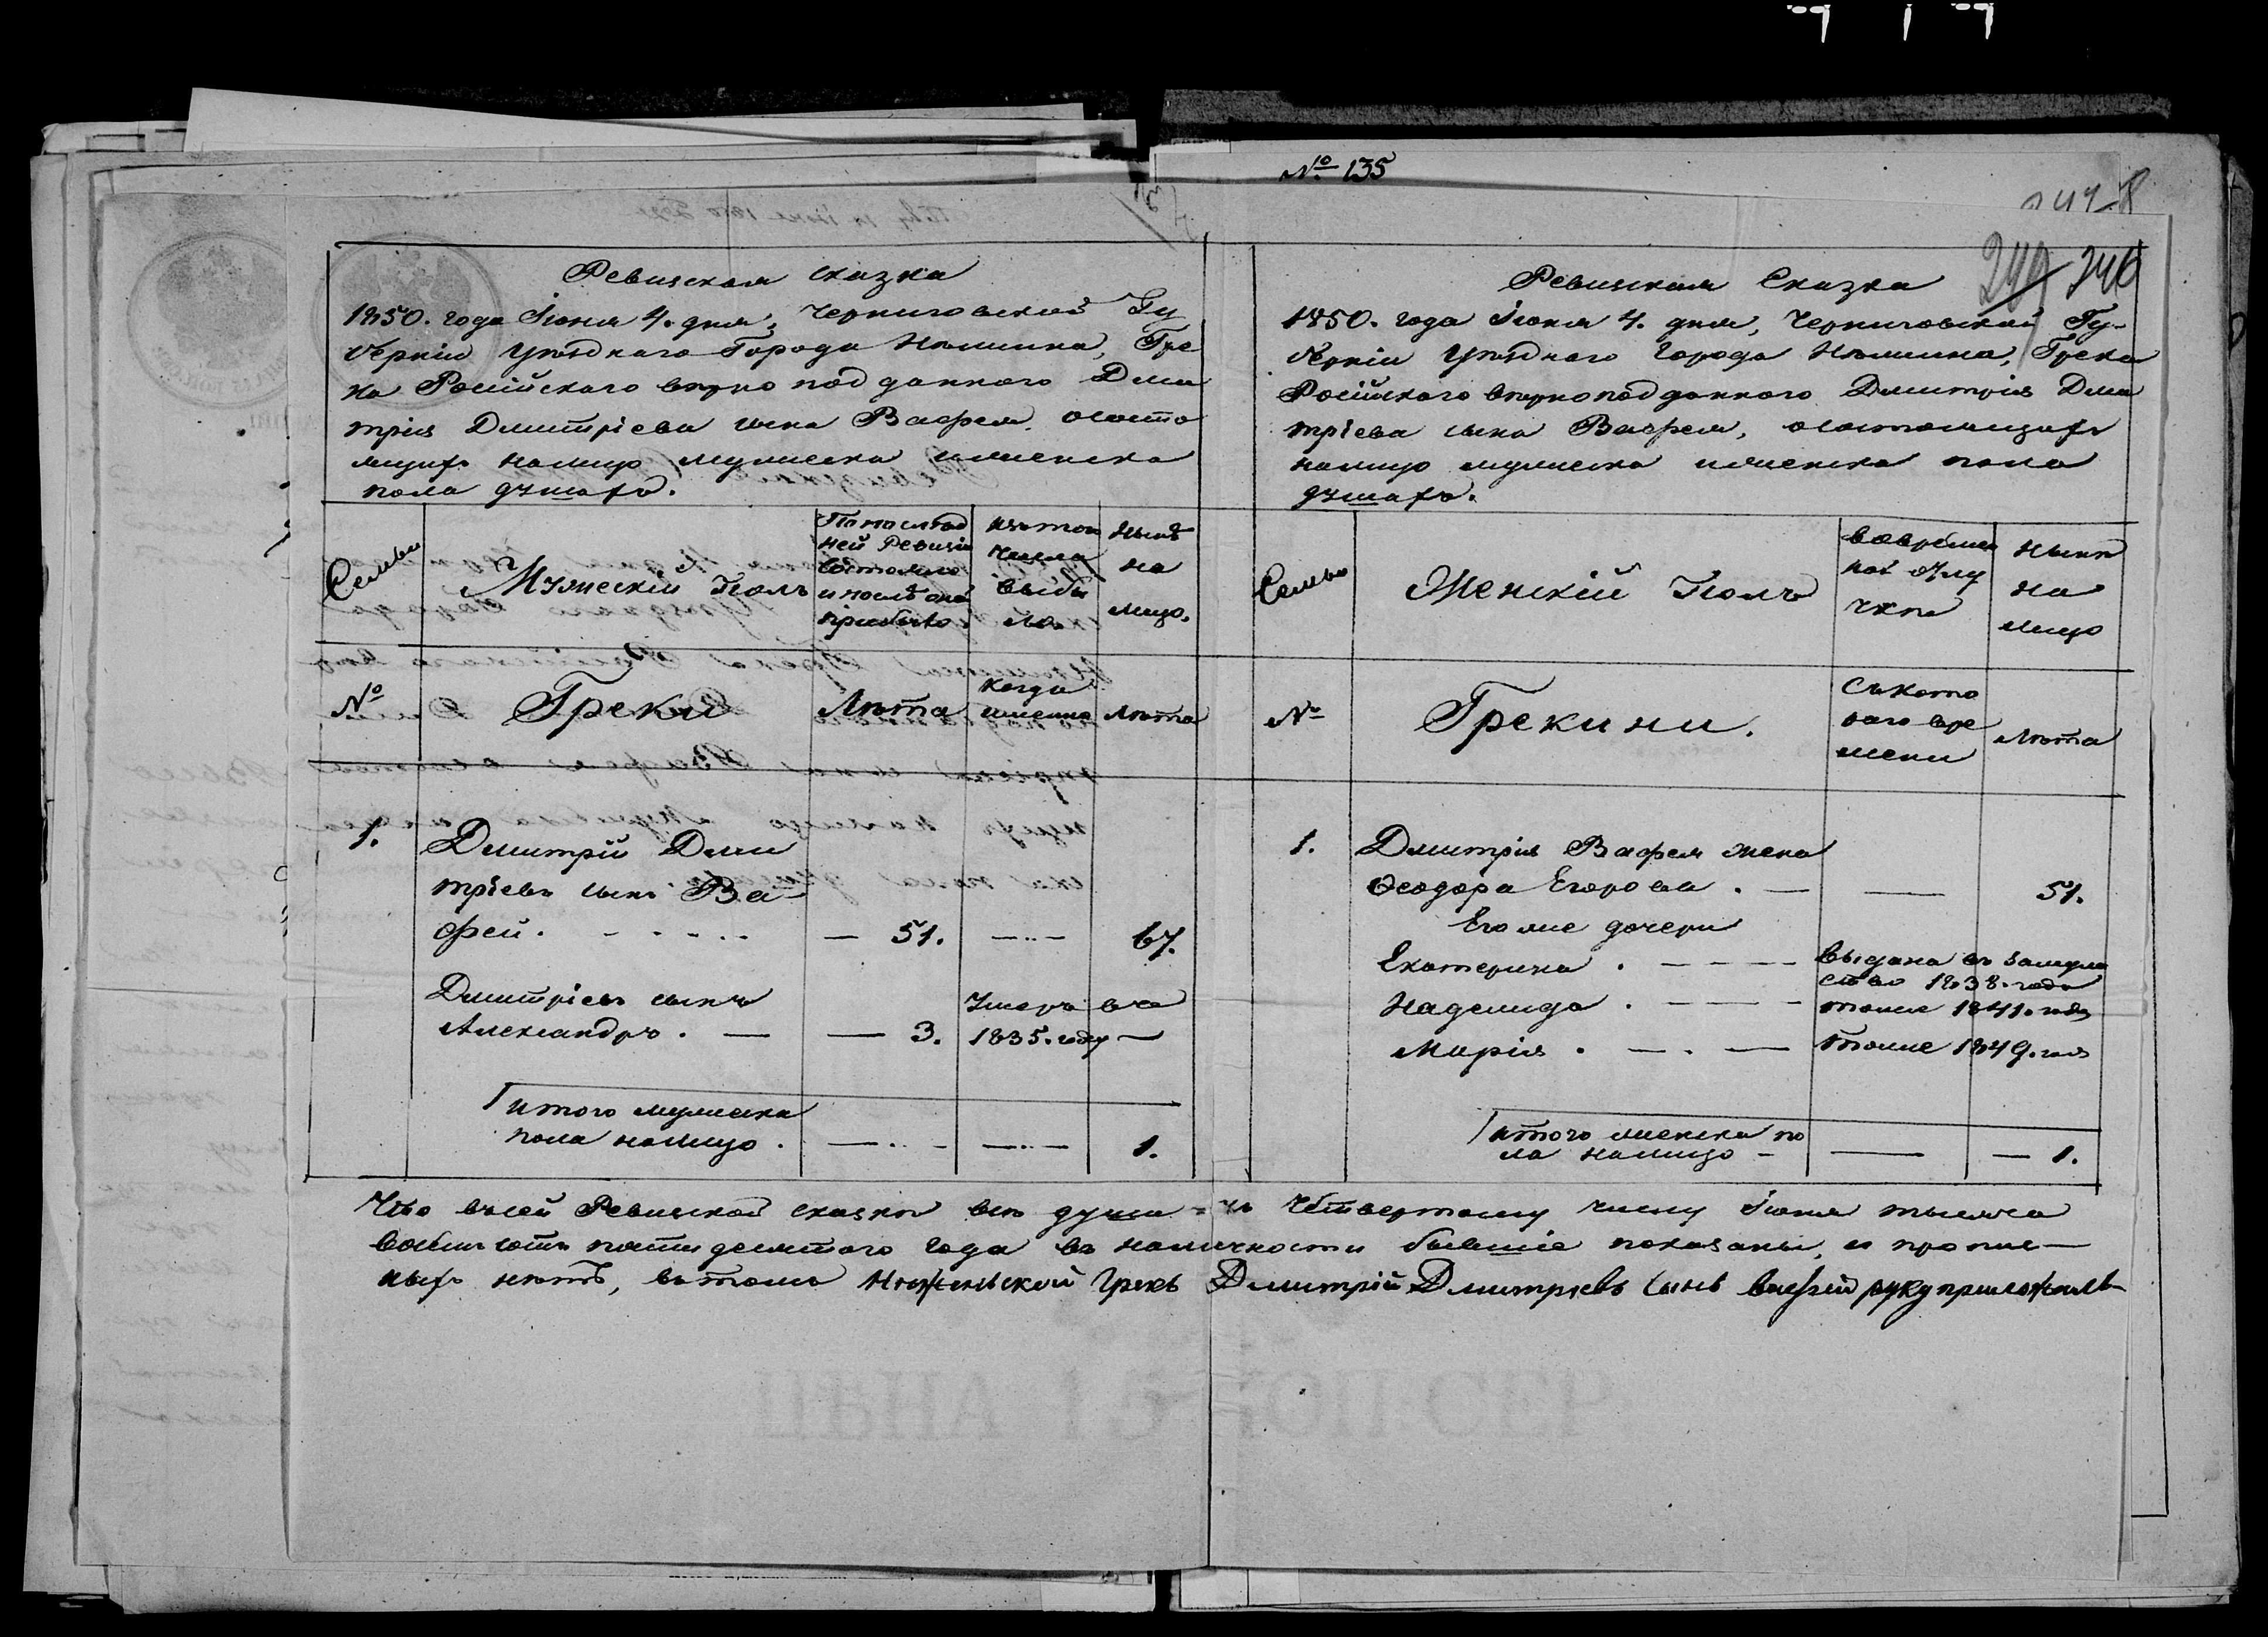 № 135
249 246
Ревизская сказка
1850. года Іюня 4. дня, Черниговской Гу
берніи уѣзднаго Города Нѣжина, Гре
ка Російскаго вѣрно подданного Дми
трія Дмитріева сына Вафея, ососто
ящихъ налицо мужеска ижненска
пола душахъ.
Семьи
Мужескій Полъ
По послѣд
ней Ревизіи
состояло
и послѣ оной
прибыло.
изъ того
числа
выбы
ло.
Нынѣ
на
лицо.
№
Греки
Лѣта
когда
именно
Лѣта
1.
Дмитрій Дми
тріевъ сынъ Ва-
фей. — 51. — 67.
Дмитріевъ сынъ
Александръ. — 3.
Умеръ въ
1835. году —
итого мужеска
пола налицо. — — 1.
Ревизская Сказка
1850. года Іюня 4. дня, Черниговской Гу-
берніи уѣзднаго города Нѣжина, Грека
Російскаго вѣрноподданного Дмитрія Дми
тріева сына Вафея, осостоящихъ
налицо мужеска иженска пола
душахъ.
Семьи
Женскій Полъ
вовремен
ной отлу
чкѣ
Нынѣ
на
лицо
№
Грекини.
Съкото
раго вре
мени
Лѣта
1.
Дмитрія Вафея жена
Ѳеодора Егорова. — — 51.
Его же дочери
Екатерина. — выдана въ замуже
ство 1838. года
Надежда. — тоже 1841. года
Марія. — тоже 1849. года
итого женска по
ла налицо — — — 1.
Что всей Ревизской сказкѣ всѣ души = къ Четвертому числу Іюня тысяча
восемьсотъ пятидесятого года въ наличности бывшіе показаны, и пропис-
ныхъ нѣтъ, въ томъ Нѣжинской Грекъ Дмитрій Дмитріевъ сынъ вафей руку приложилъ